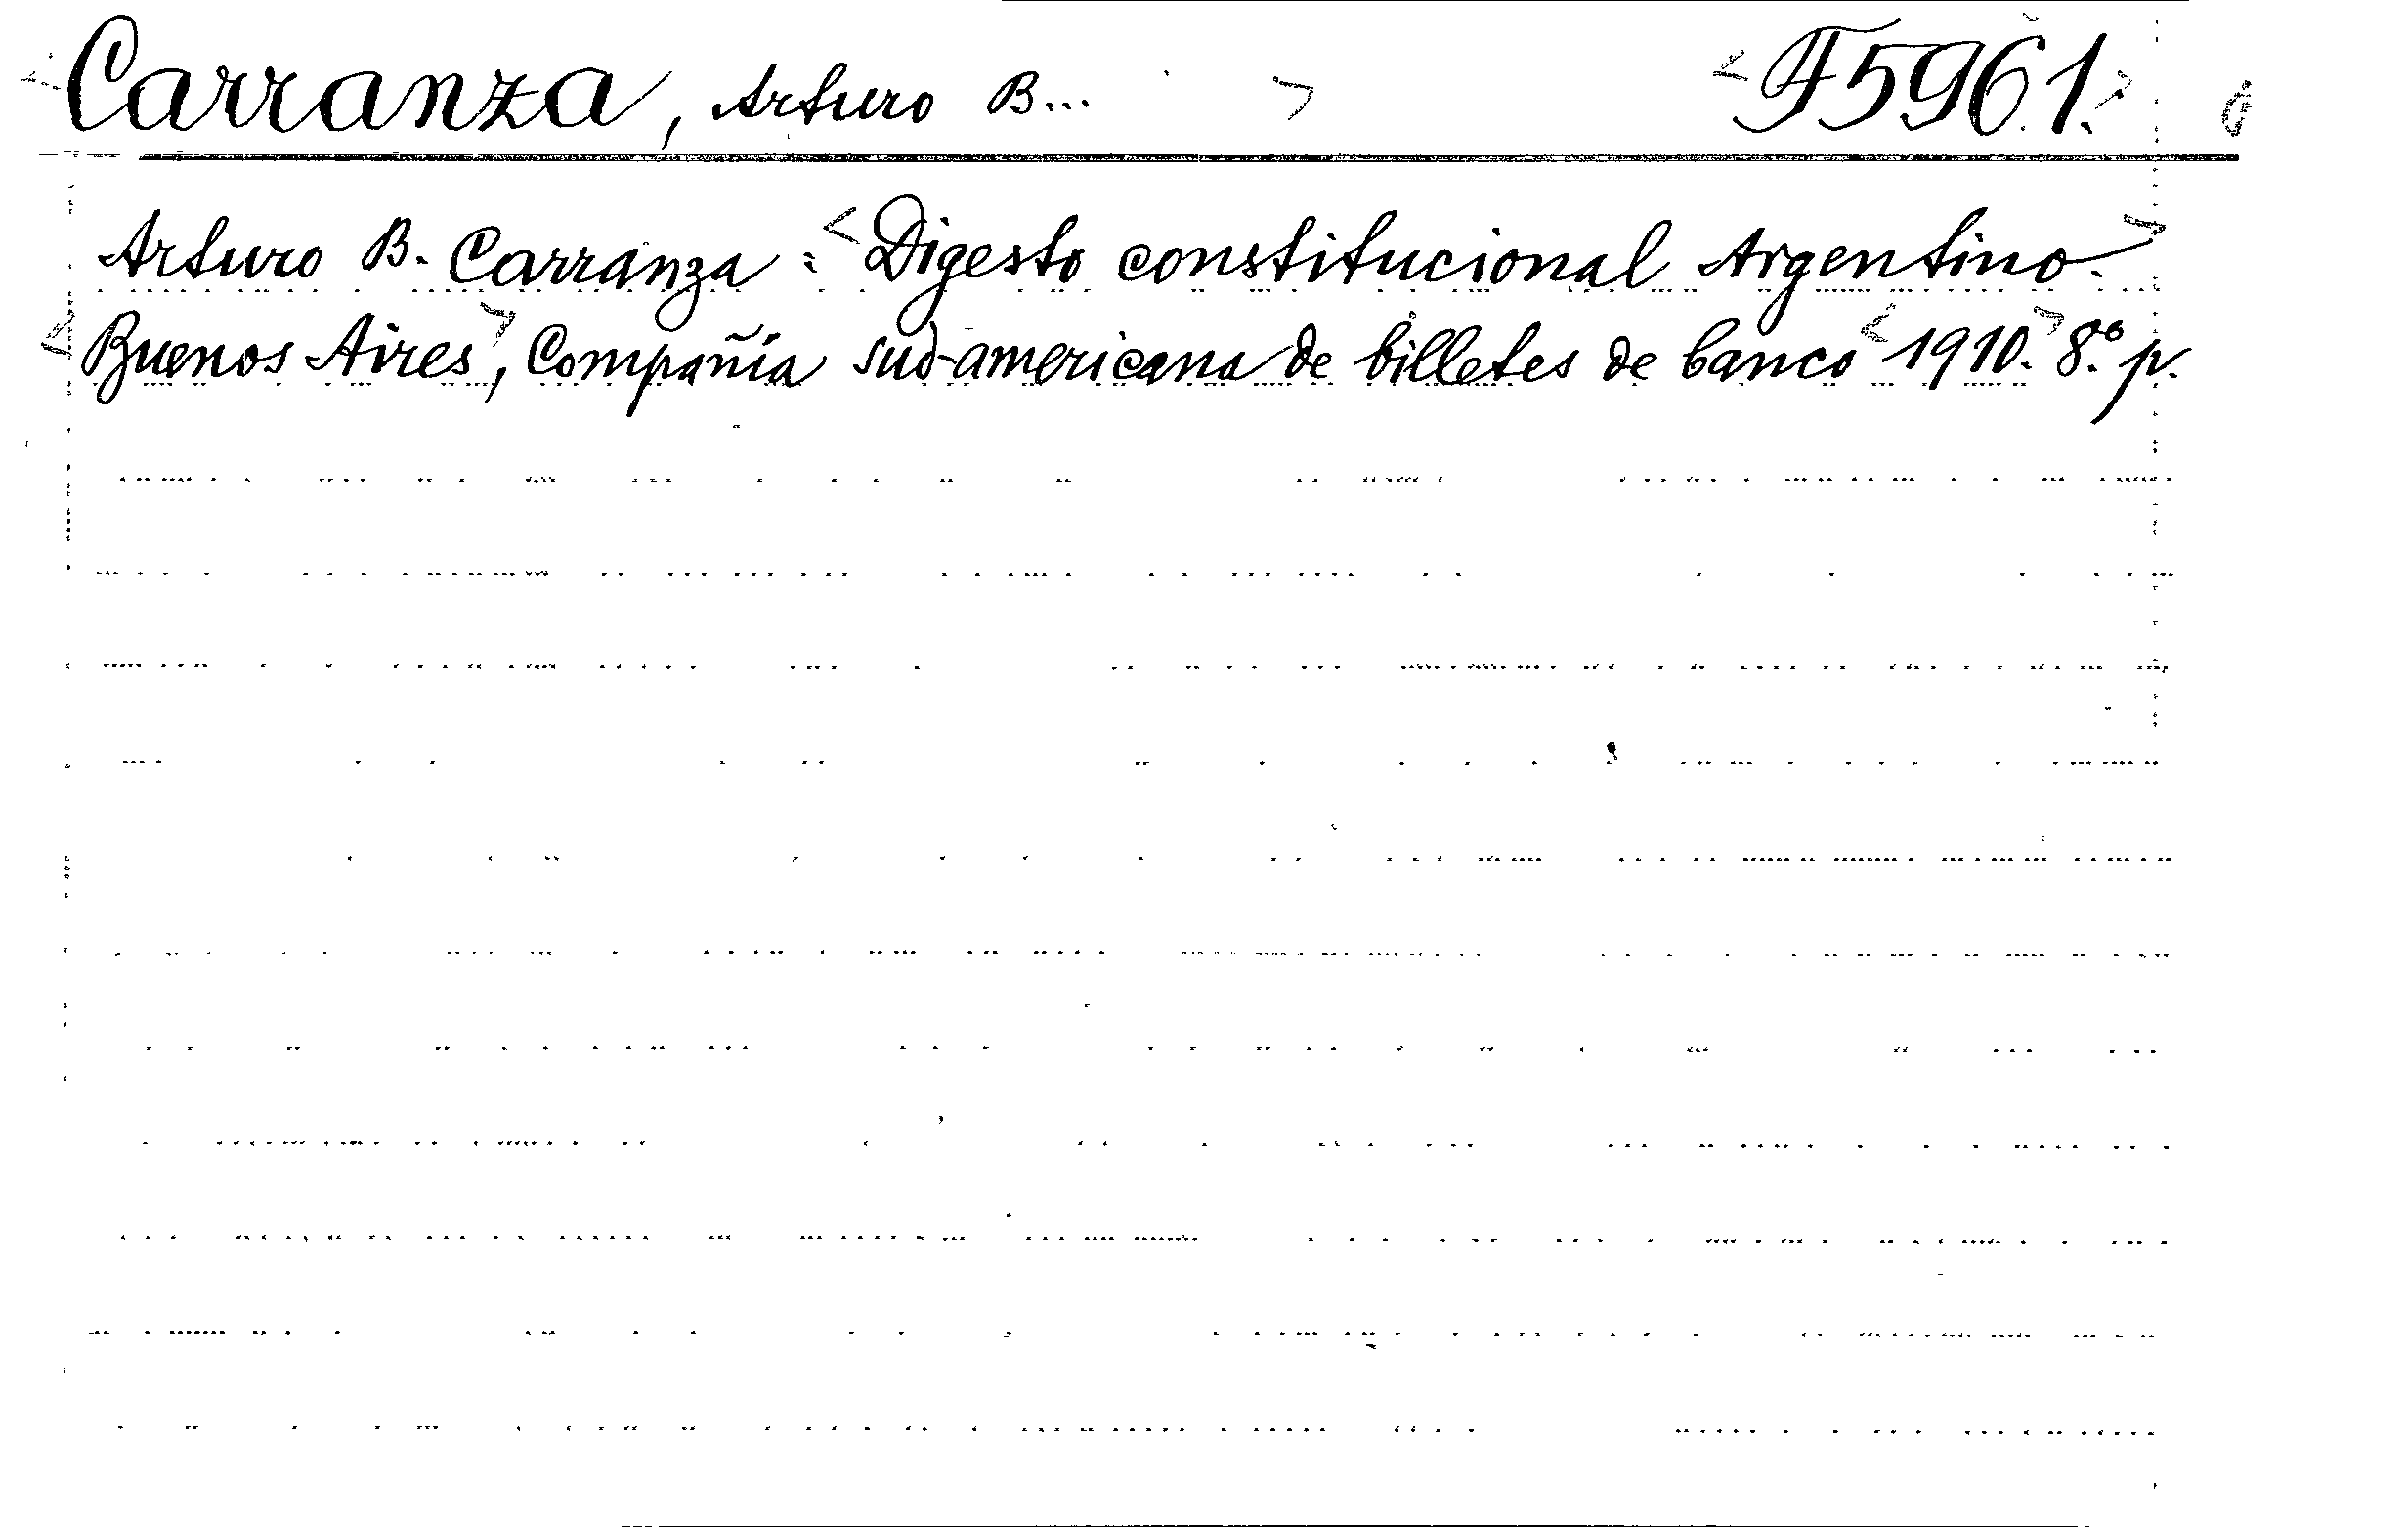 Carranza, Arturo B... F5961.
Arturo B. Carranza: Digesto constitucional Argentino.
Buenos Aires, Compañía sud-americana de billetes de banco 1910. 8.º p.